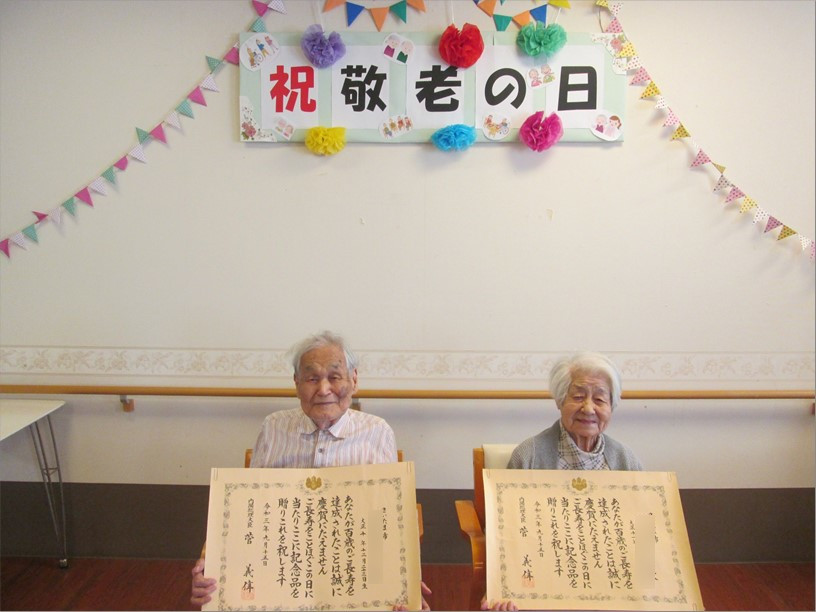 祝敬老の日
さいたま市
大正十年二月二三日生
あなたが百歳のご長寿を
達成されたことは誠に
慶賀にたえません
ご長寿をことほぐこの日に
当たりここに記念品を
贈りこれを祝します
令和三年九月十五日
内閣総理大臣 菅 義偉
大正十
あなたが百歳のご長寿を
達成されたことは誠に
慶賀にたえません
ご長寿をことほぐこの日に
当たりここに記念品を
贈りこれを祝します
令和三年九月十五日
内閣総理大臣 菅 義偉